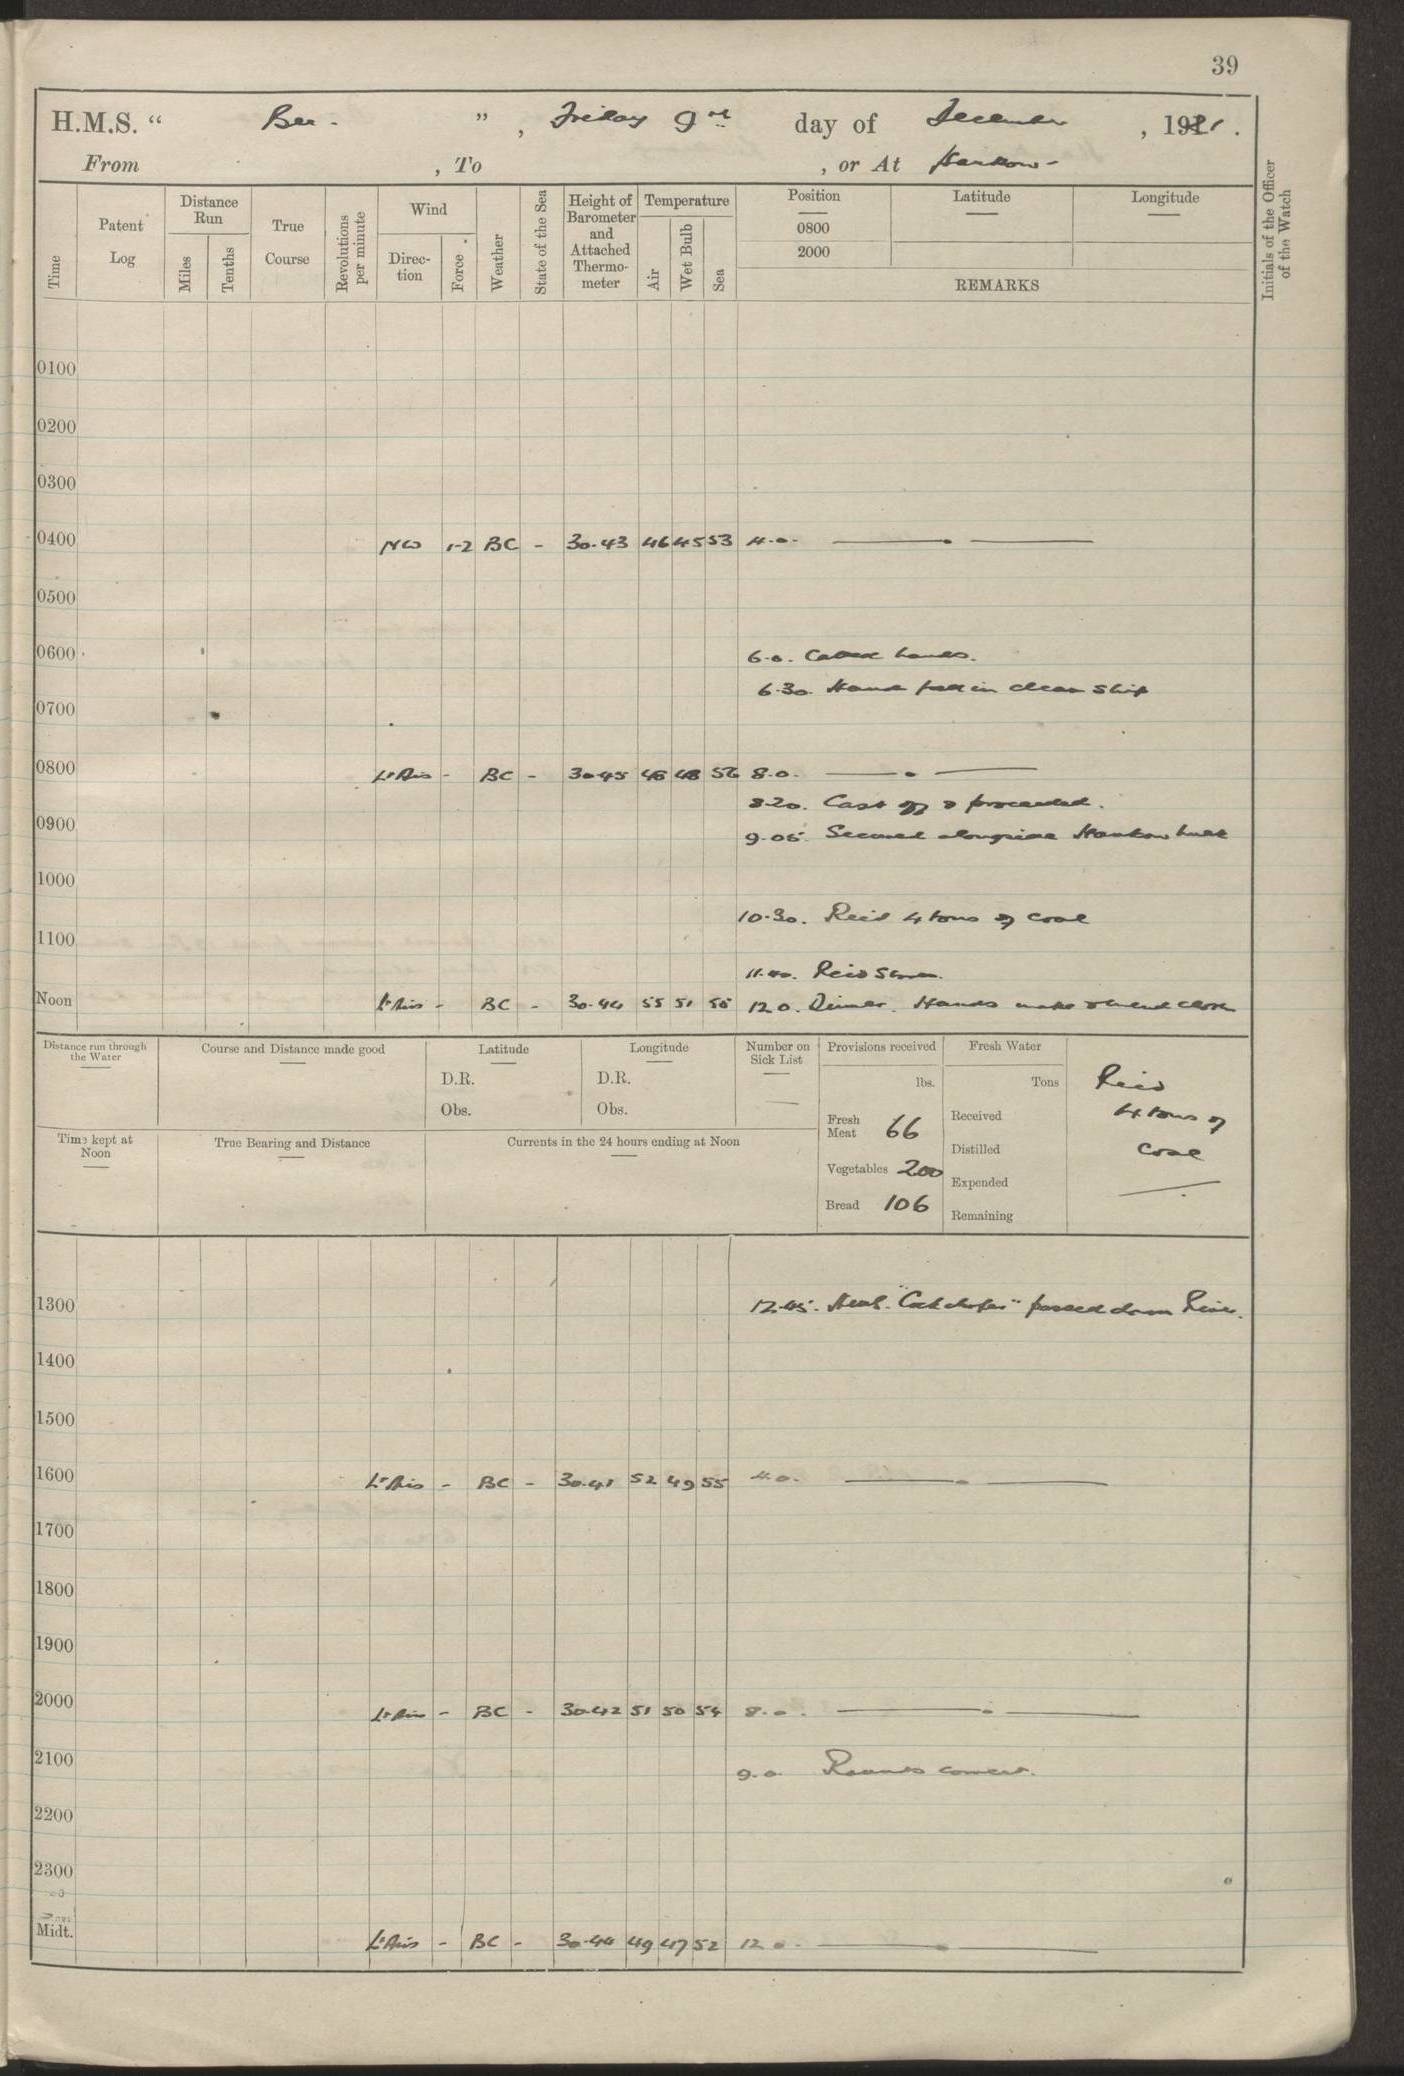 39
H.M.S. " Bee. " , Friday 9th day of December , 1921 .
From , To , or At Hankow-
Time
Patent Log
Distance Run
Miles
Tenths
True Course
Revolutions per minute
Wind
Direction
Force
Weather
State of the Sea
Height of Barometer and Attached Thermometer
Temperature
Air
Wet Bulb
Sea
Position
0800
2000
Latitude
Longitude
REMARKS
Initials of the Officer of the Watch
0100
0200
0300
0400 NW 1-2 BC - 30.43 46 45 53 4.0.
0500
0600 6.0. Called hands.
6.30. Hands fall in clean ship
0700
0800 Lt Airs - BC - 30.45 48 48 8.0.
8.20. Cast off & proceeded.
0900 9.05. Secured alongside Hankow hulk
1000
10.30. Recd 4 tons of coal
1100
11.40. Recd
Noon Lt Airs - BC - 30.44 55 51 12.0. Dinner. Hands make & mend clothes
Distance run through the Water
Course and Distance made good
Latitude
D.R.
Obs.
Longitude
D.R.
Obs.
Number on Sick List
Provisions received
lbs.
Fresh Meat 66
Vegetables 200
Bread 106
Fresh Water
Tons
Received
Distilled
Expended
Remaining
Recd
4 tons of
coal
Time kept at Noon
True Bearing and Distance
Currents in the 24 hours ending at Noon
1300 12.45. H.M.S. "Cockchafer" passed down River.
1400
1500
1600 Lt Airs - BC - 30.41 52 49 55 4.0.
1700
1800
1900
2000 Lt Airs - BC - 30.42 51 50 54 8.0.
2100 9.0 Rounds correct.
2200
2300
Midt. Lt Airs - BC - 30.44 49 47 52 12.0.